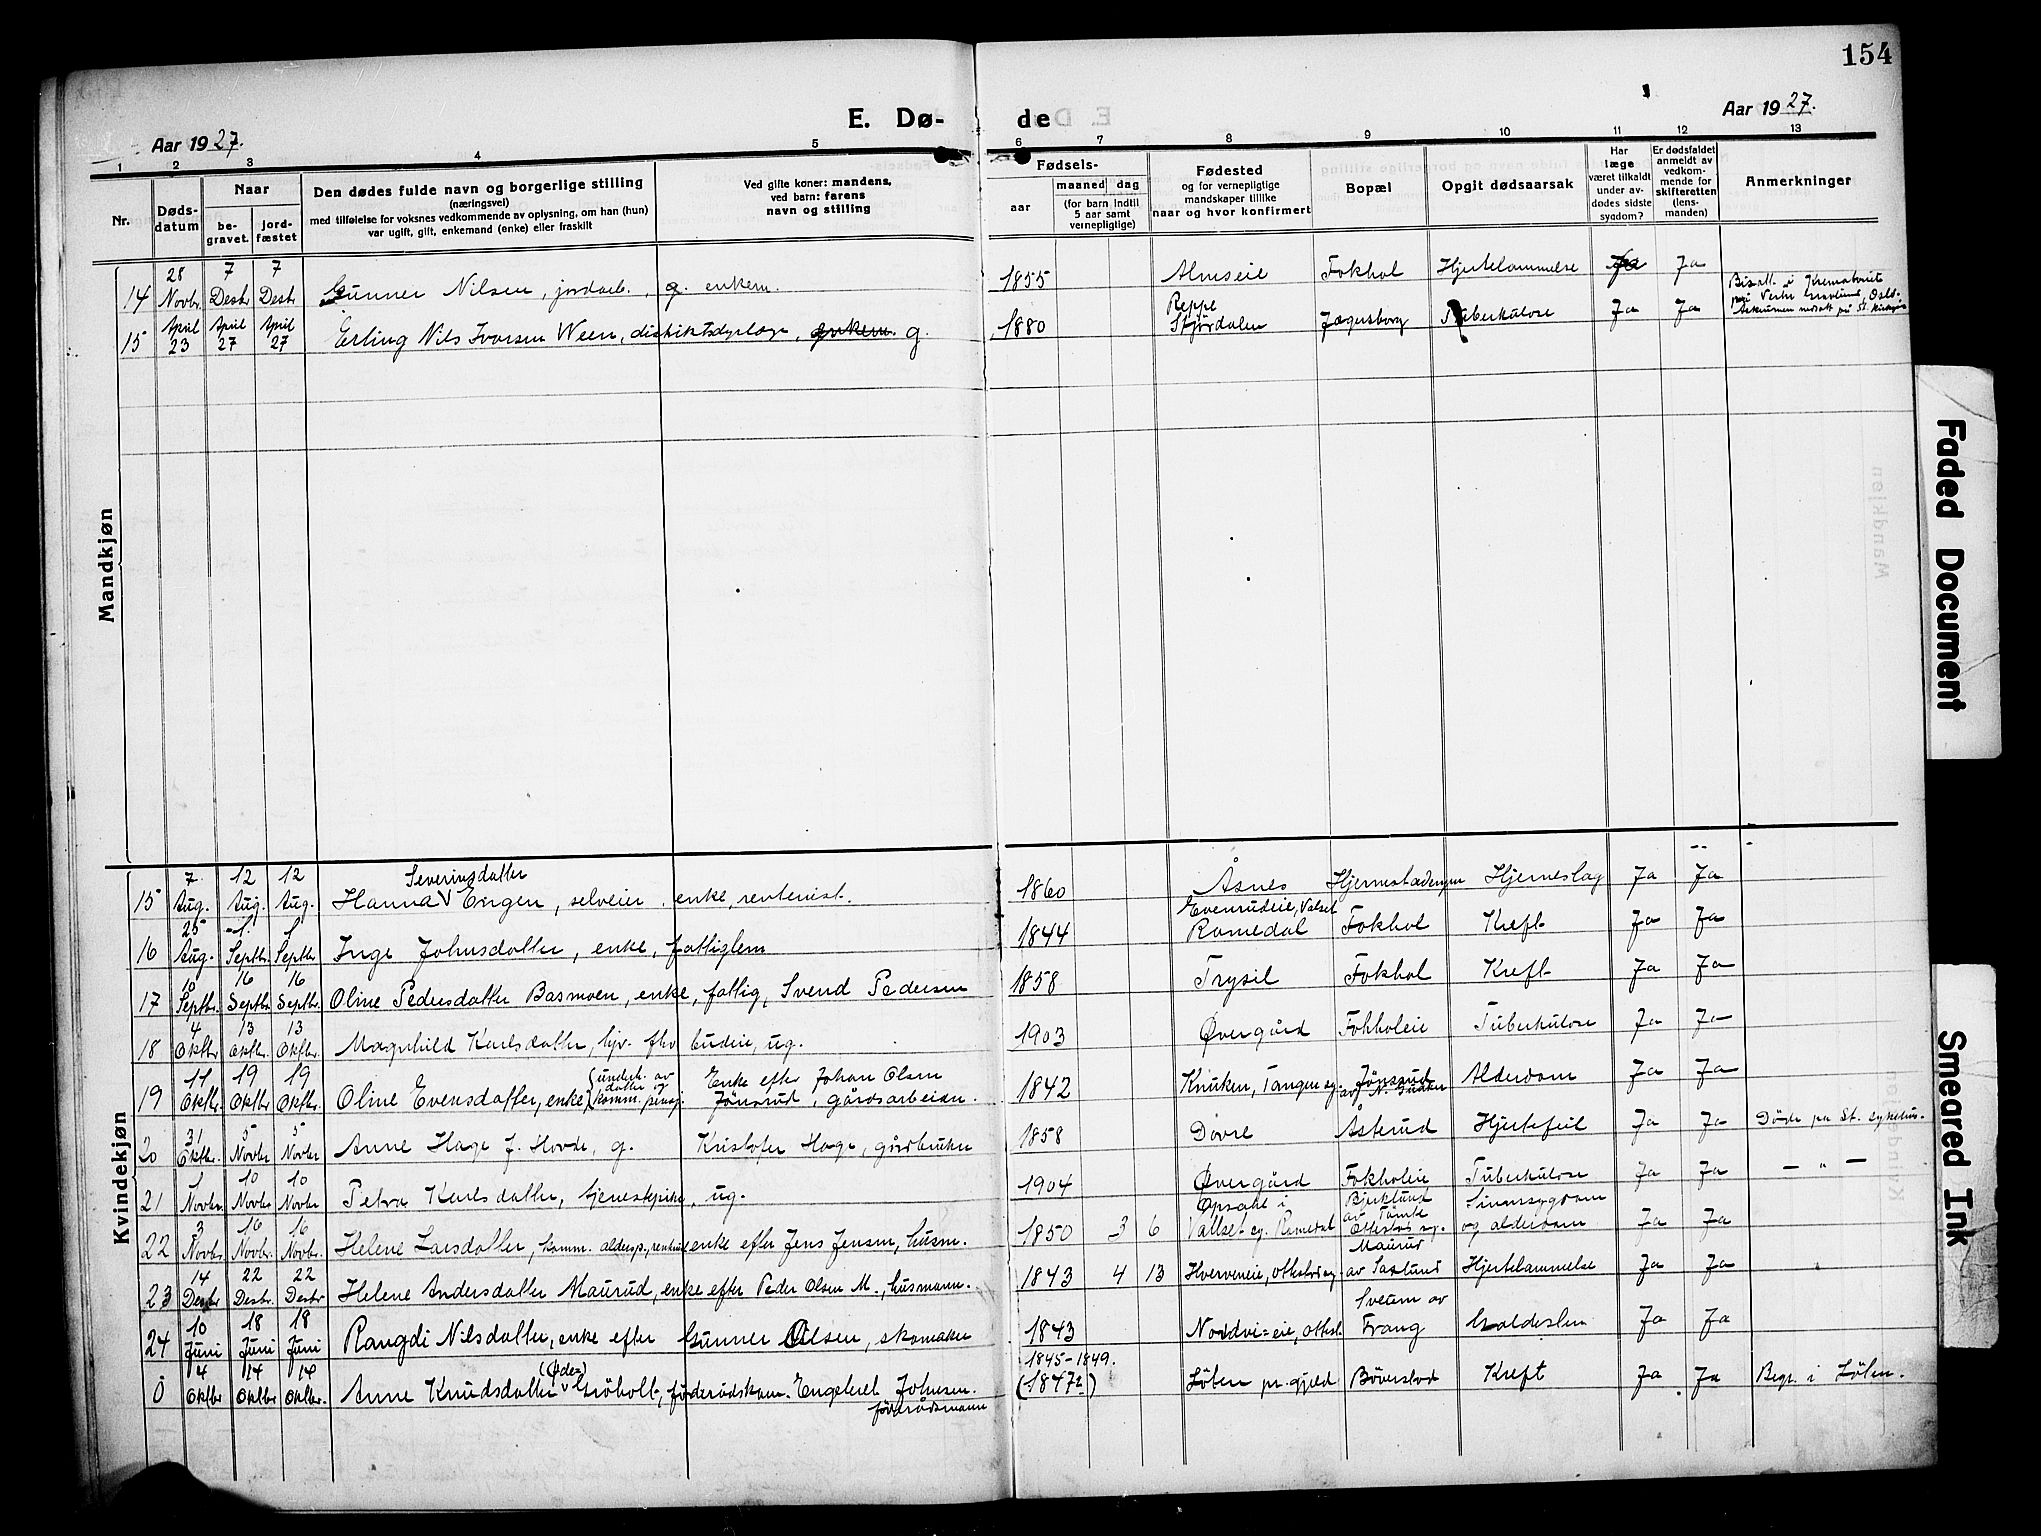 154
E. Dø- de
Aar 1927.
Aar 1927.
1 2 3 4 5 6 7 8 9 10 11 12 13
Nr.
Døds-datum
Naar
be-gravet.
jord-fæstet
Den dødes fulde navn og borgerlige stilling
(næringsvei)
med tilføielse for voksnes vedkommende av oplysning, om han (hun)
var ugift, gift, enkemand (enke) eller fraskilt
Ved gifte koner: mandens,
ved barn: farens
navn og stilling
Fødsels-
aar
maaned dag
(for barn indtil
5 aar samt
vernepligtige)
Fødested
og for vernepligtige
mandskaper tillike
naar og hvor konfirmert
Bopæl
Opgit dødsaarsak
Har
læge
været tilkaldt
under av-
dødes sidste
sygdom?
Er dødsfaldet
anmeldt av
vedkom-
mende for
skifteretten
(lens-
manden)
Anmerkninger
Mandkjøn
14 28 Novbr. 7 Desbr 7 Desbr Gunner Nilsen, jordarb., g. enkem. 1855 Almseie Fokhol Hjertelammelse Ja Ja
15 April 23 April 27 April 27 Erling Nils Ivarsen Ween, distriktsdyrlæge, enkem. g. 1880 Reppe Stjørdalen Jægersborg Tuberkulose Ja Ja
Kvindekjøn
15 7. Aug. 12 Aug. 12 Aug. Hanna Severinsdatter Engen, selveier. enke, rentenist. 1860 Åsnes Hjerneslag Ja Ja
16 25 Aug. 1. Septbr. 1 Septbr Inge Johnsdatter, enke, fattiglem 1844 Evenrudeie, Valset Romedal Fokhol Kreft Ja Ja
17 10 Septbr. 16 Septbr. 16 Septbr. Oline Pedersdatter Basmoen, enke, fattig, Svend Pedersen 1858 Trysil Fokhol Kreft Ja Ja
18 4 Oktbr. 13 Oktbr. 13 Oktbr. Magnhild Karlsdatter, hjv. fhv budeie, ug. 1903 Øvergård Fokholeie Tuberkulose Ja Ja
19 11 Oktbr. 19 Oktbr. 19 Oktbr. Oline Evensdatter, enke, (underh. av datter og komm. pensj. Enke efter Johan Olsen Jönsrud, gårdsarbeider. 1842 Knuken, Tangen sg. Jönsrud Alderdom Ja Ja
20 31 Oktbr. 5 Novbr 5 Novbr Anne Hage f. Hovde, g. Kristofer Hage, gårdbruker 1858 Dovre Åsterud Hjertefeil Ja Ja Døde på St. sykehus.
21 1 Novbr. 10 Novbr 10 Novbr Petra Karlsdatter, tjenestepike, ug. 1904 Øvergård Fokholeie Tuberkulose Ja Ja — " —
22 3 Novbr. 16 Novbr. 16 Novbr. Helene Larsdatter, komm. aldersp., enke efter Jens Jensen, husm. 1850 3 6 Opsahl i Vallset sg. Romedal Bjerklund Sinnssygdom og alderdom Ja Ja
23 14 Desbr 22 Desbr. 22 Desbr Helene Andersdatter Maurud, enke efter Peder Olsen M., husmann. 1843 4 13 Hverveneie, Ottestad sg. Maurud av Saxlund Hjertelammelse Ja Ja "
24 10 Juni 18 Juni 18 Juni Rangdi Nilsdatter, enke efter Gunner Olsen, skomaker 1843 Nordvi-eie, Ottest. Sveten av Frang Ja Ja
0 4 Oktbr 14 Oktbr 14 Oktbr. Anne Knudsdatter (Ødez) Gröholt, föderådskone. Engebret Johnsen. föderådsmann 1845-1849. (1847?) Löten pr.gjeld Böverstad Kreft Ja Ja Begr. i Löten.
Faded Document
Smeared Ink